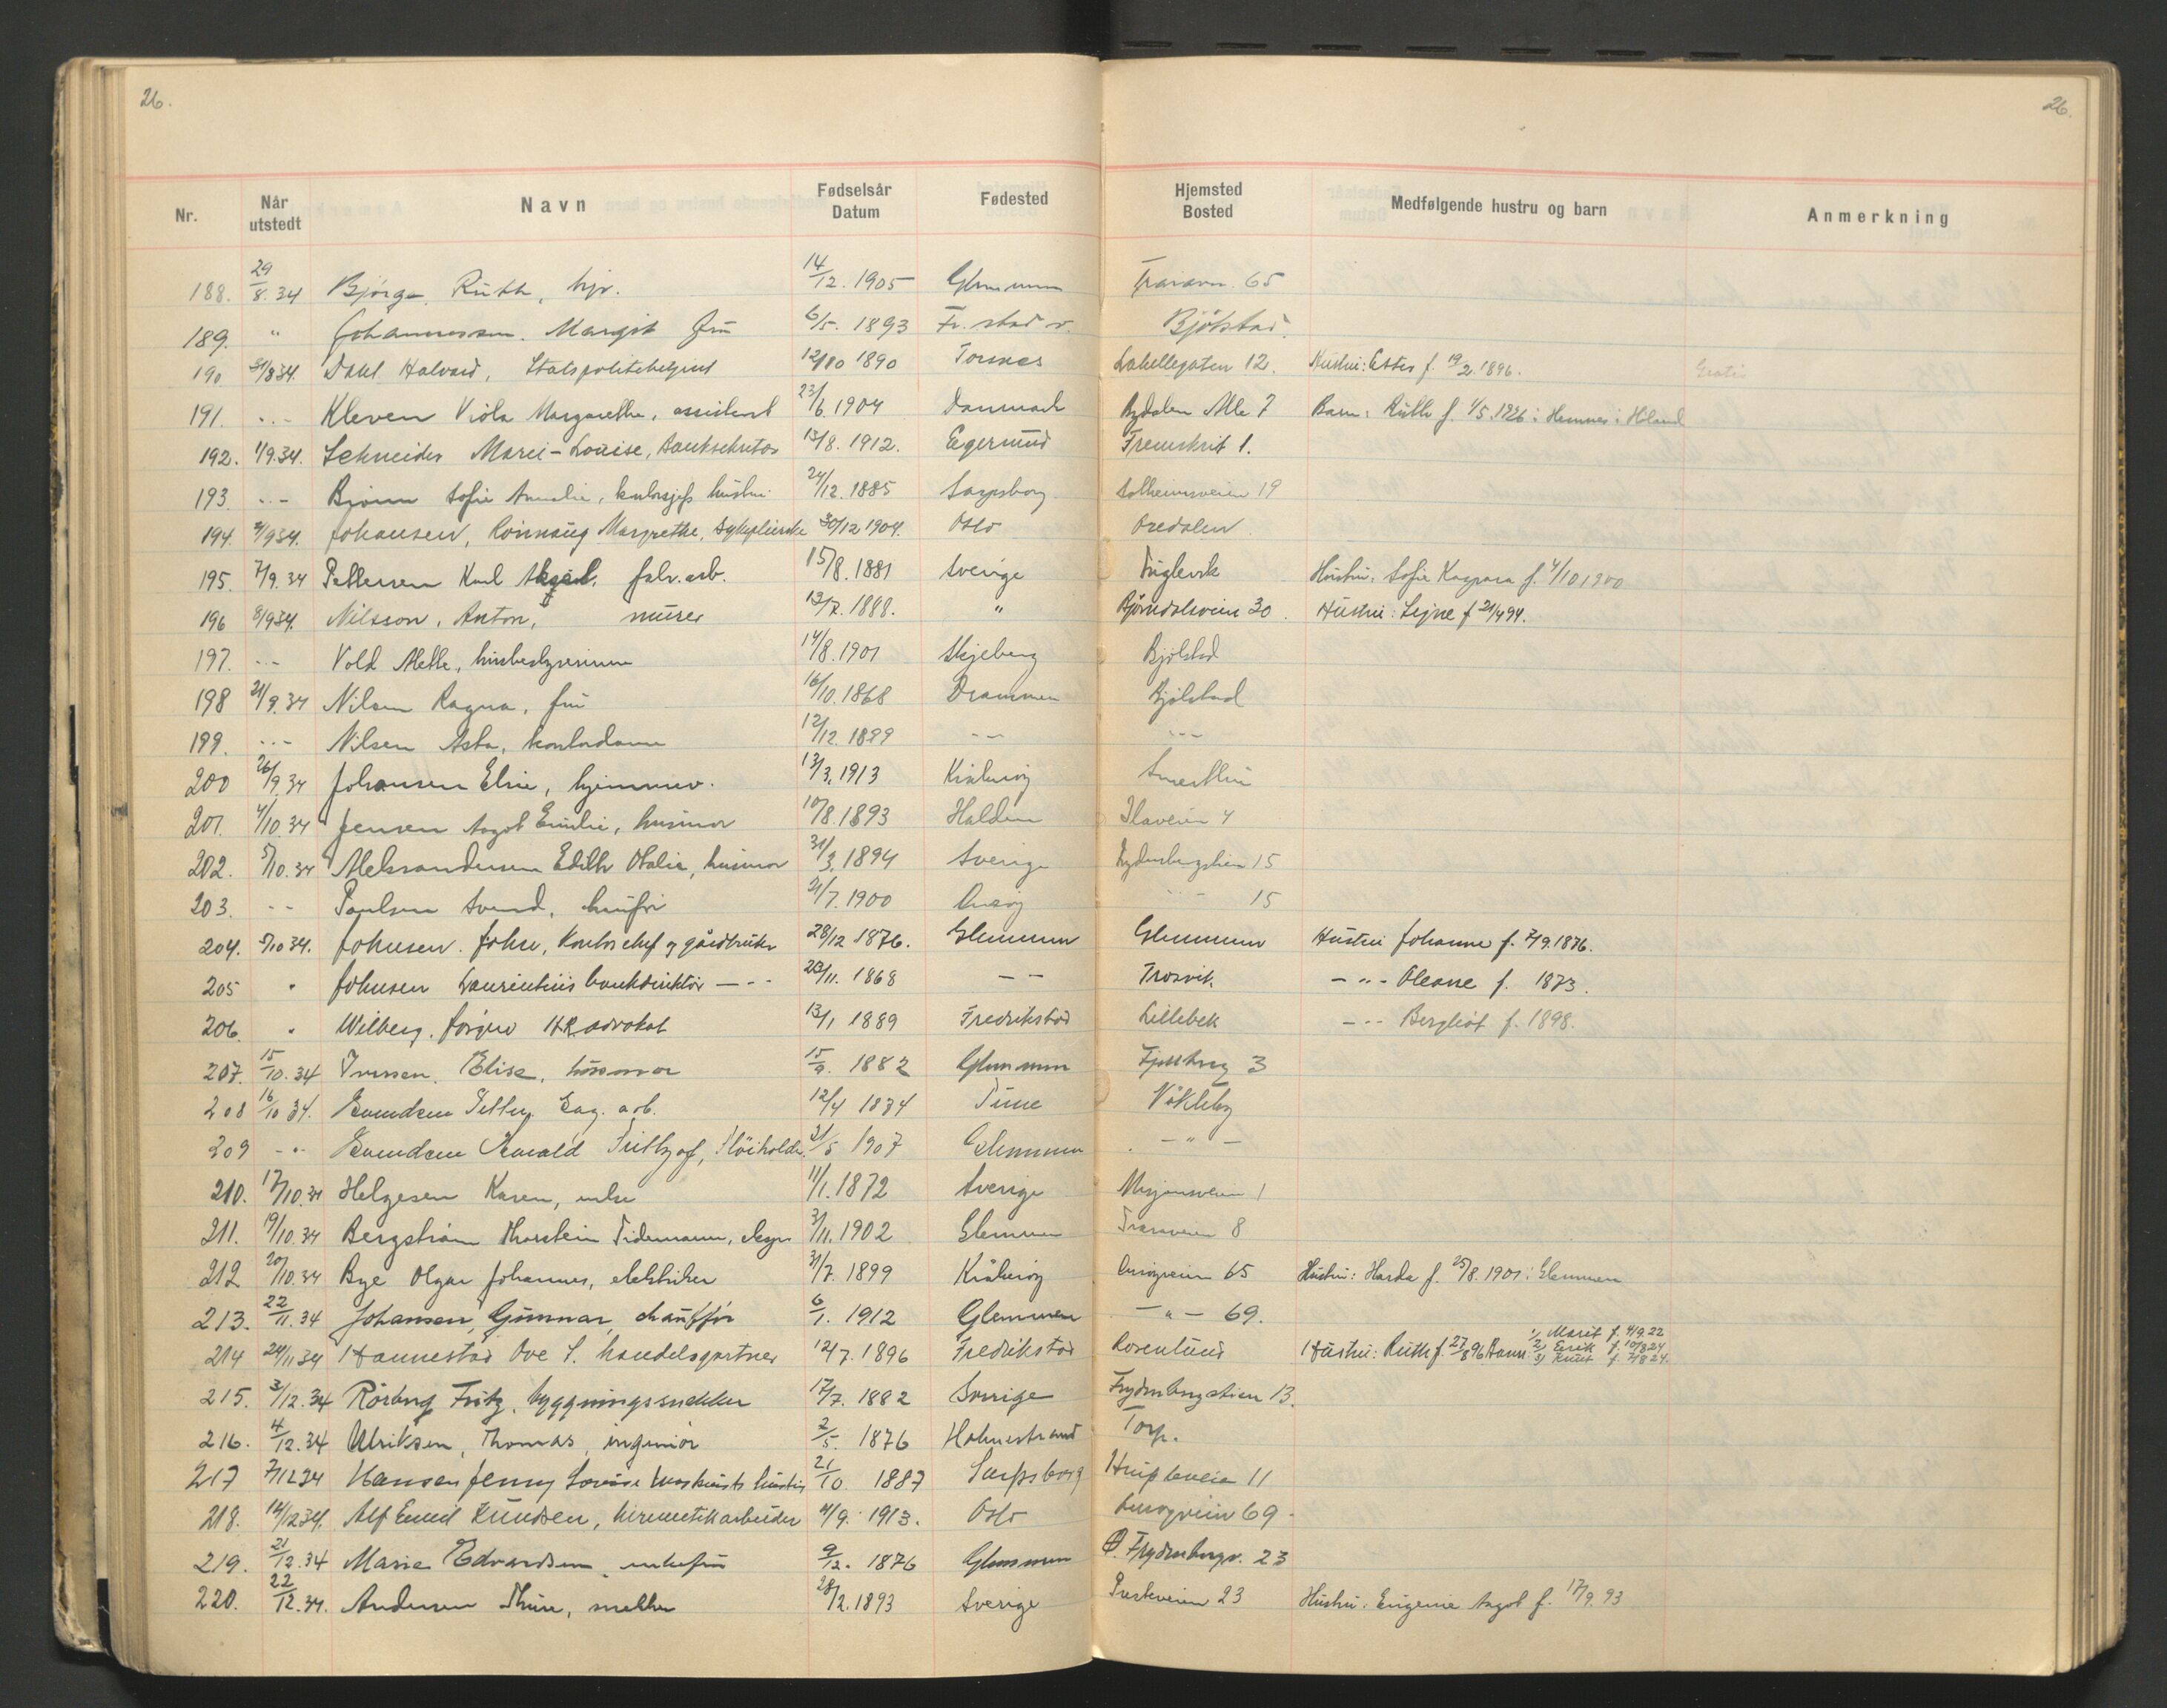 26.
26.
Nr. Når utstedt Navn Fødselsår Datum Fødested Hjemsted Bosted Medfølgende hustru og barn Anmerkning
188. 29/8.34 Bjørge, Ruth, hjv. 14/12.1905 Glemmen Traraveien 65
189. " Johannessen. Margit Fru 6/5. 1893 Fr.stad Bjølstad.
190 31/8 34. Dahl Halvard, Statspolitibetjent 12/10 1890 Torsnes Labellegaten 12. Hustru: Ester f. 19/2.1896. Gratis
191. -"- Kleven Viola Margarethe, assistent 23/6.1904 Danmark Rydalen Alle 7 Barn: Ruth f. 1/5.1926 i Hemnes i Høland
192. 1/9.34. Schneider Marie-Louise, Banksekretær 13/8.1912. Egersund Fremskrit 1.
193 -"- Bjønn Sofie Amalie, kontorsjefs hustru 24/12.1885 Sarpsborg Solheimsveien 19
194. 4/9 34. Johansen, Rønnaug Margrethe, sykepleierske 30/12 1904. Oslo Oredalen
195. 7/9.34 Pettersen Karl Aksel, fabr.arb. 15/8.1881 Sverige Fuglevik Hustru: Sofie Kaspara f. 4/10 1900
196 8/9 34. Nilsson, Anton, murer 13/2.1888. " Bjørndalsveien 30. Hustru: Signe f 21/4 94.
197. -"- Vold Alette, husbestyrerinne 14/8.1901 Skjeberg Bjølstad
198 21/9.34 Nilsen Ragna, fru 16/10.1868 Drammen Bjølstad
199. -"- Nilsen Asta, kontordame 12/12.1899 -"- -"-
200 26/9.34 Johansen Elsie, hjemmev. 13/3.1913 Kråkerøy
201. 4/10.34 Jensen Aagot Emilie, husmor 10/8.1893 Halden Ilaveien 4
202. 5/10.34 Aleksandersen Edith Otalie, husmor 31/3.1894 Sverige Frydenbergstien 15
203. -"- Paulsen Svend, 21/7.1900 Onsøy -"- 15
204. 5/10 34. Johnsen. Johs, Kontorchef og gårdbruker 28/12 1876. Glemmen Glemmen Hustru Johanne f. 7/9.1876.
205 " Johnsen Laurentius bankdirektør -"- 23/11. 1868 -"- Trosvik. -"- Oleane f. 1873.
206. " Wilberg. Jørgen H.R.advokat 13/1 1889 Fredrikstad Lillebek -"- Bergliot f. 1898.
207. 15/10.34 Iversen. Elise, husmor 15/9. 1882 Glemmen 3
208 16/10 34. Evendsen Petter, Sag. arb. 12/4 1874 Tune Nøkleby
209 -"- Evendsen Harald Fritjof, 31/5 1907 Glemmen -"-
210. 17/10.34 Helgesen Karen, enke 11/1.1872 Sverige Misjonsveien 1
211. 19/10.34 Bergstrøm Thorstein Tidemann, 3/11.1902 Glemmen Traraveien 8
212 20/10.34 Bye Olgar Johannes, elektriker 31/7.1899 Kråkerøy Onsøyveien 65 Hustru: Harda f. 25/8.1901 i Glemmen
213. 22/11.34 Johansen, Gunnar, chauffør 6/1. 1912 Glemmen -"- 69.
214 24/11 34 Hannestad Ove S. handelsgartner 12/7.1896 Fredrikstad Rosenlund Hustru: Ruth f. 27/8 96 Barn: 1/ Marit f. 4/9 22 2/ Erik f. 10/8 24 3/ Knut f. 7/8 24.
215. 3/12.34 Rörberg Fritz, bygningssnekker 17/7. 1882 Sverige Frydenbergstien 13.
216. 4/12.34 Ulriksen, Thomas, ingeniør 2/5. 1876 Holmestrand Torp.
217 7/12 34 Hansen Jenny Lovise maskinists hustru 21/10 1887 Sarpsborg 11
218. 14/12 34. Alf Emil Knudsen, hermetikarbeider 4/9. 1913. Oslo Onsøyveien 69.
219. 21/12.34 Marie Edvardsen, enkefru 9/12. 1876 Glemmen Ø. Frydenbergv. 23
220. 22/12.34. Andersen Thure, snekker 28/2.1893 Sverige Presteveien 23 Hustru: Eugenie Aagot f. 17/9.93